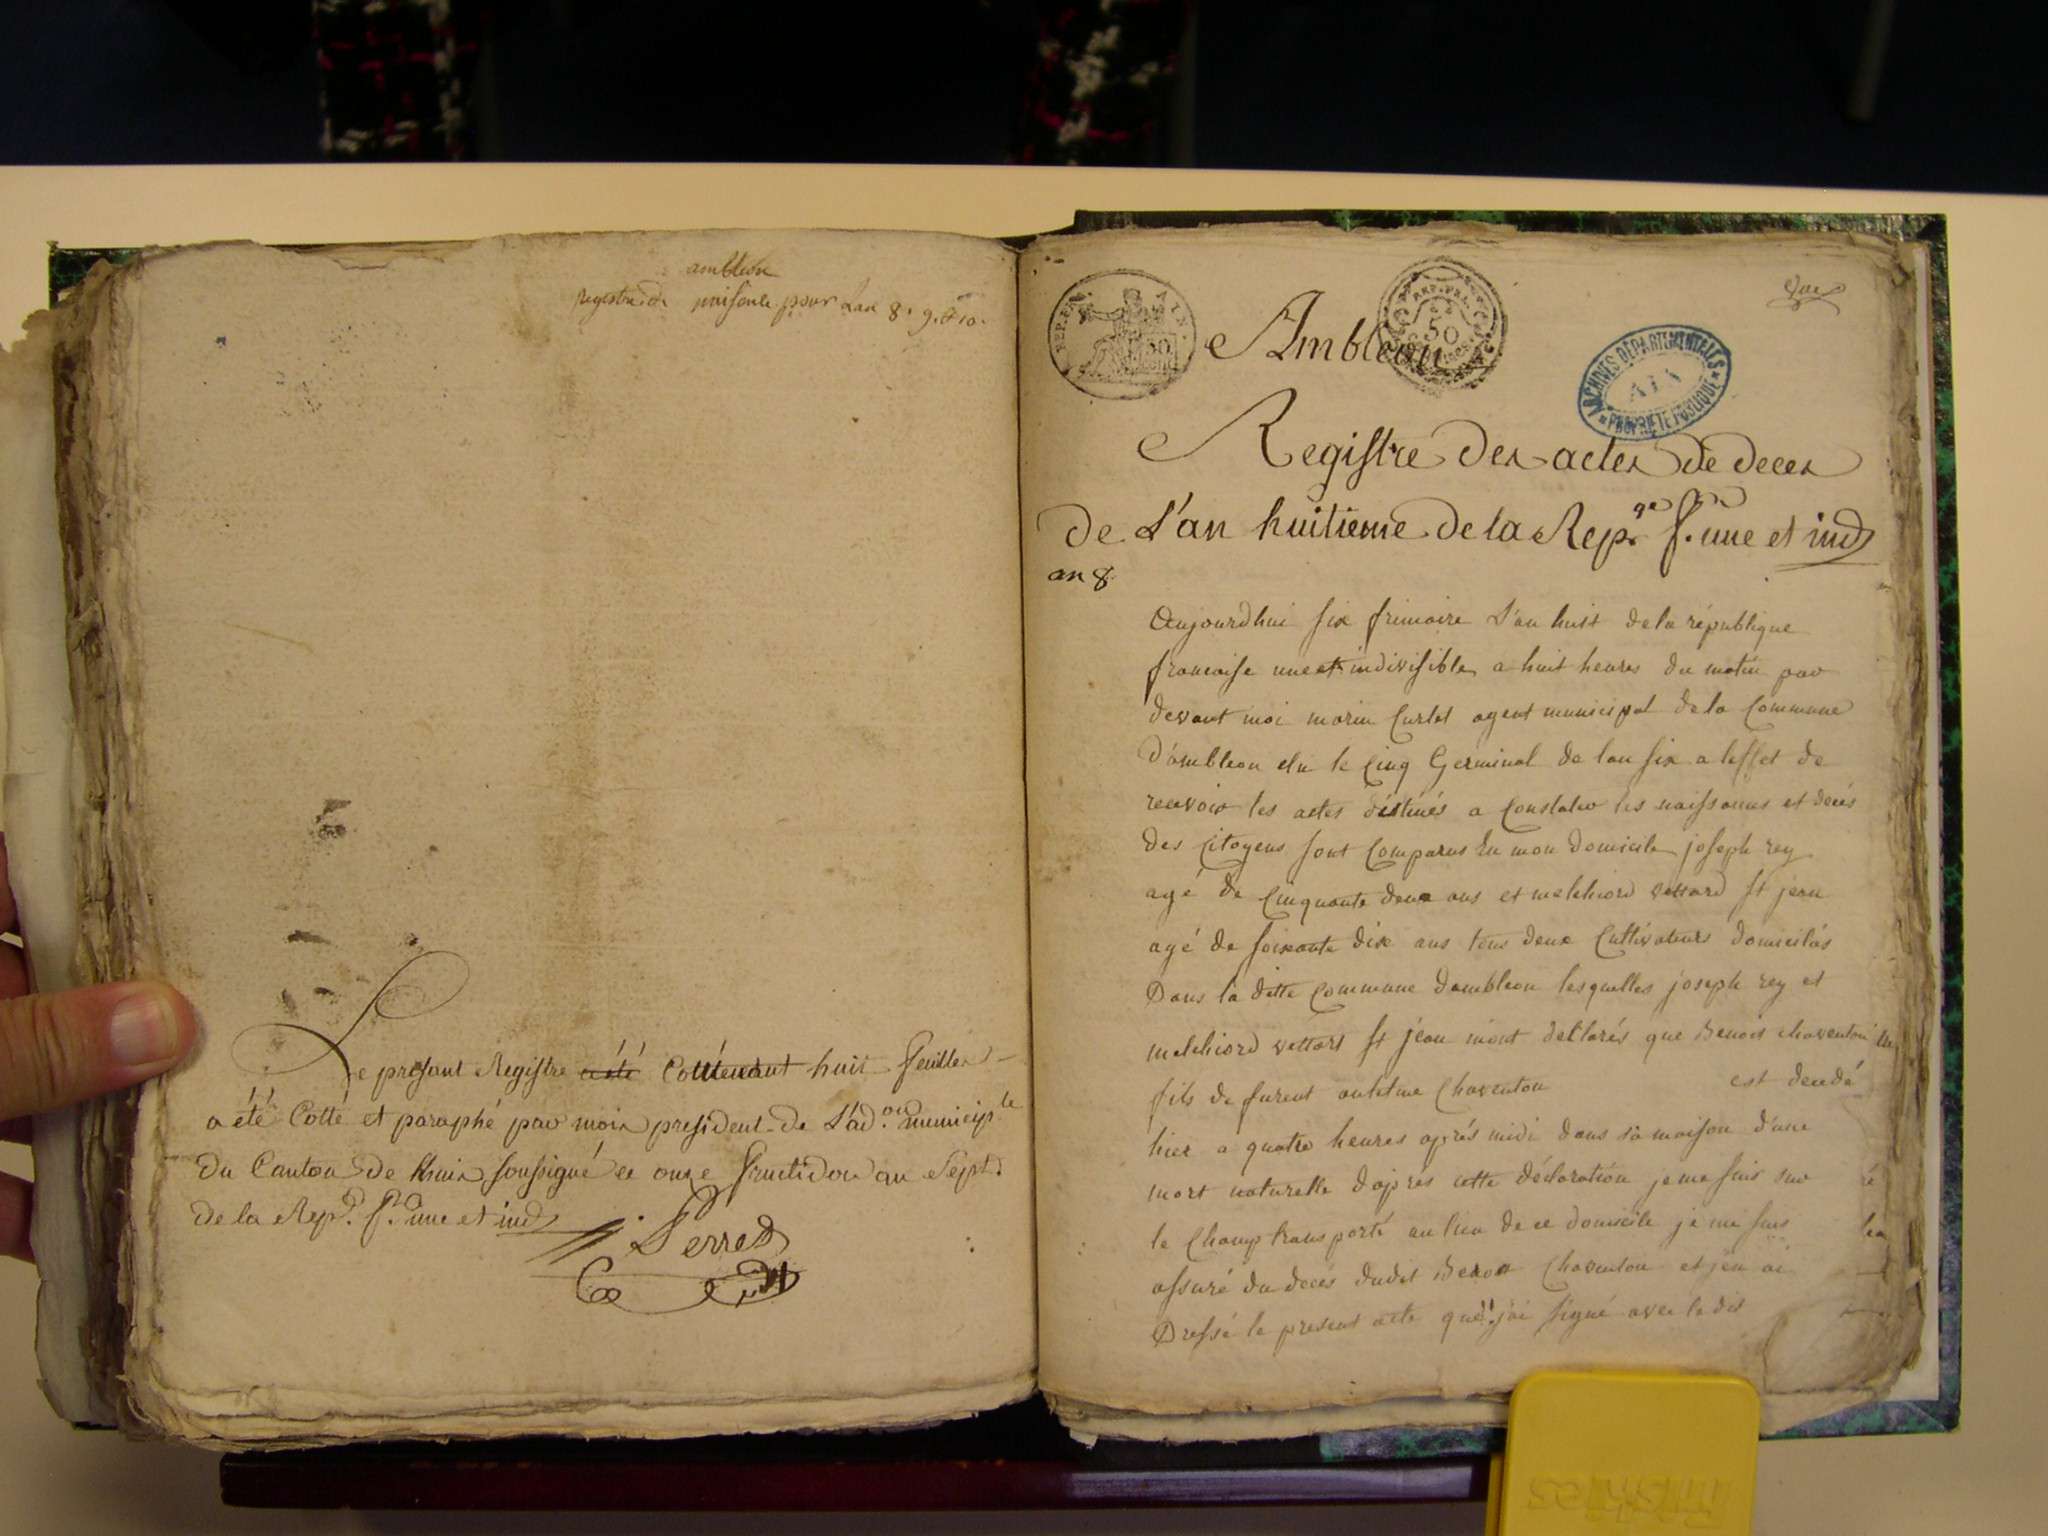 ambleon
registre de naissance pour Lan 8. 9. et 10.
Le present Registre a été Contenant huit feuilles
a été Cotté et paraphé par moi president de L'ad.on municip.le
du Canton de soussigné ce onze fructidor an sept.
de la Rep. f. une et ind
Perret
REP. FRA
50
REP. FRA.
50
Ambleon
ARCHIVES DÉPARTEMENTALES
AIN
PROPRIÉTÉ PUBLIQUE
Registre des actes de deces
de L'an huitieme de la Rep.que f. une et ind
an 8
Aujourdhui six frimaire L'an huit de la république
francaise une et indivisible a huit heures du matin par
devant moi marin Curlet agent municipal de la Commune
D'ambleon elu le Cinq Germinal de lan six a leffet de
recevoir les actes déstinés a Constater les naissances et decés
des Citoyens sont Comparus En mon domicile joseph rey
agé de Cinquante deux ans et melchiord vettard st jean
agé de soixante dix ans tous deux Cultivateurs domiciliés
Dans la ditte Commune dambleon lesquelles joseph rey et
melchiord vettart st jean mont declarés que Benois chaventon
fils de furent antelme Chaventon est decedé
hier a quatre heures aprés midi dans sa maison d'une
mort naturelle daprés cette déclaration je me suis sur
le Champ transporté au lieu de ce domicile je me suis
assuré du decés dudit Benoi Chaventon et jen ai
Dressé le present acte que j'ai signé avec le dis
fiskies